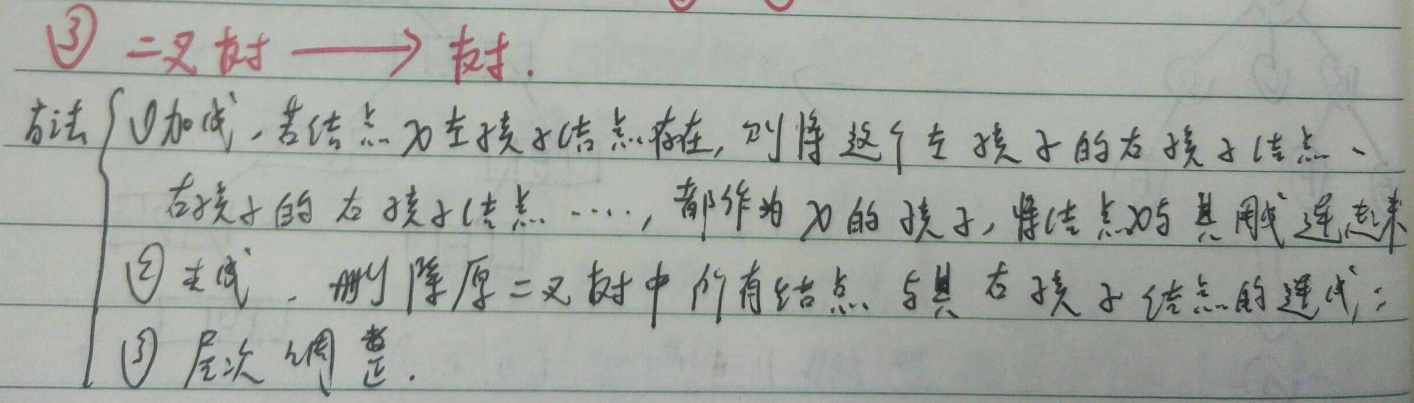 ③ 二叉树 ⟶ 树.
方法 ①加线,若结点X左孩子结点存在,则将这个左孩子的右孩子结点、
右孩子的右孩子结点……,都作为X的孩子,将结点X与其用线连起来
②去线.删除原二叉树中所有结点与其右孩子结点的连线;
③层次调整.